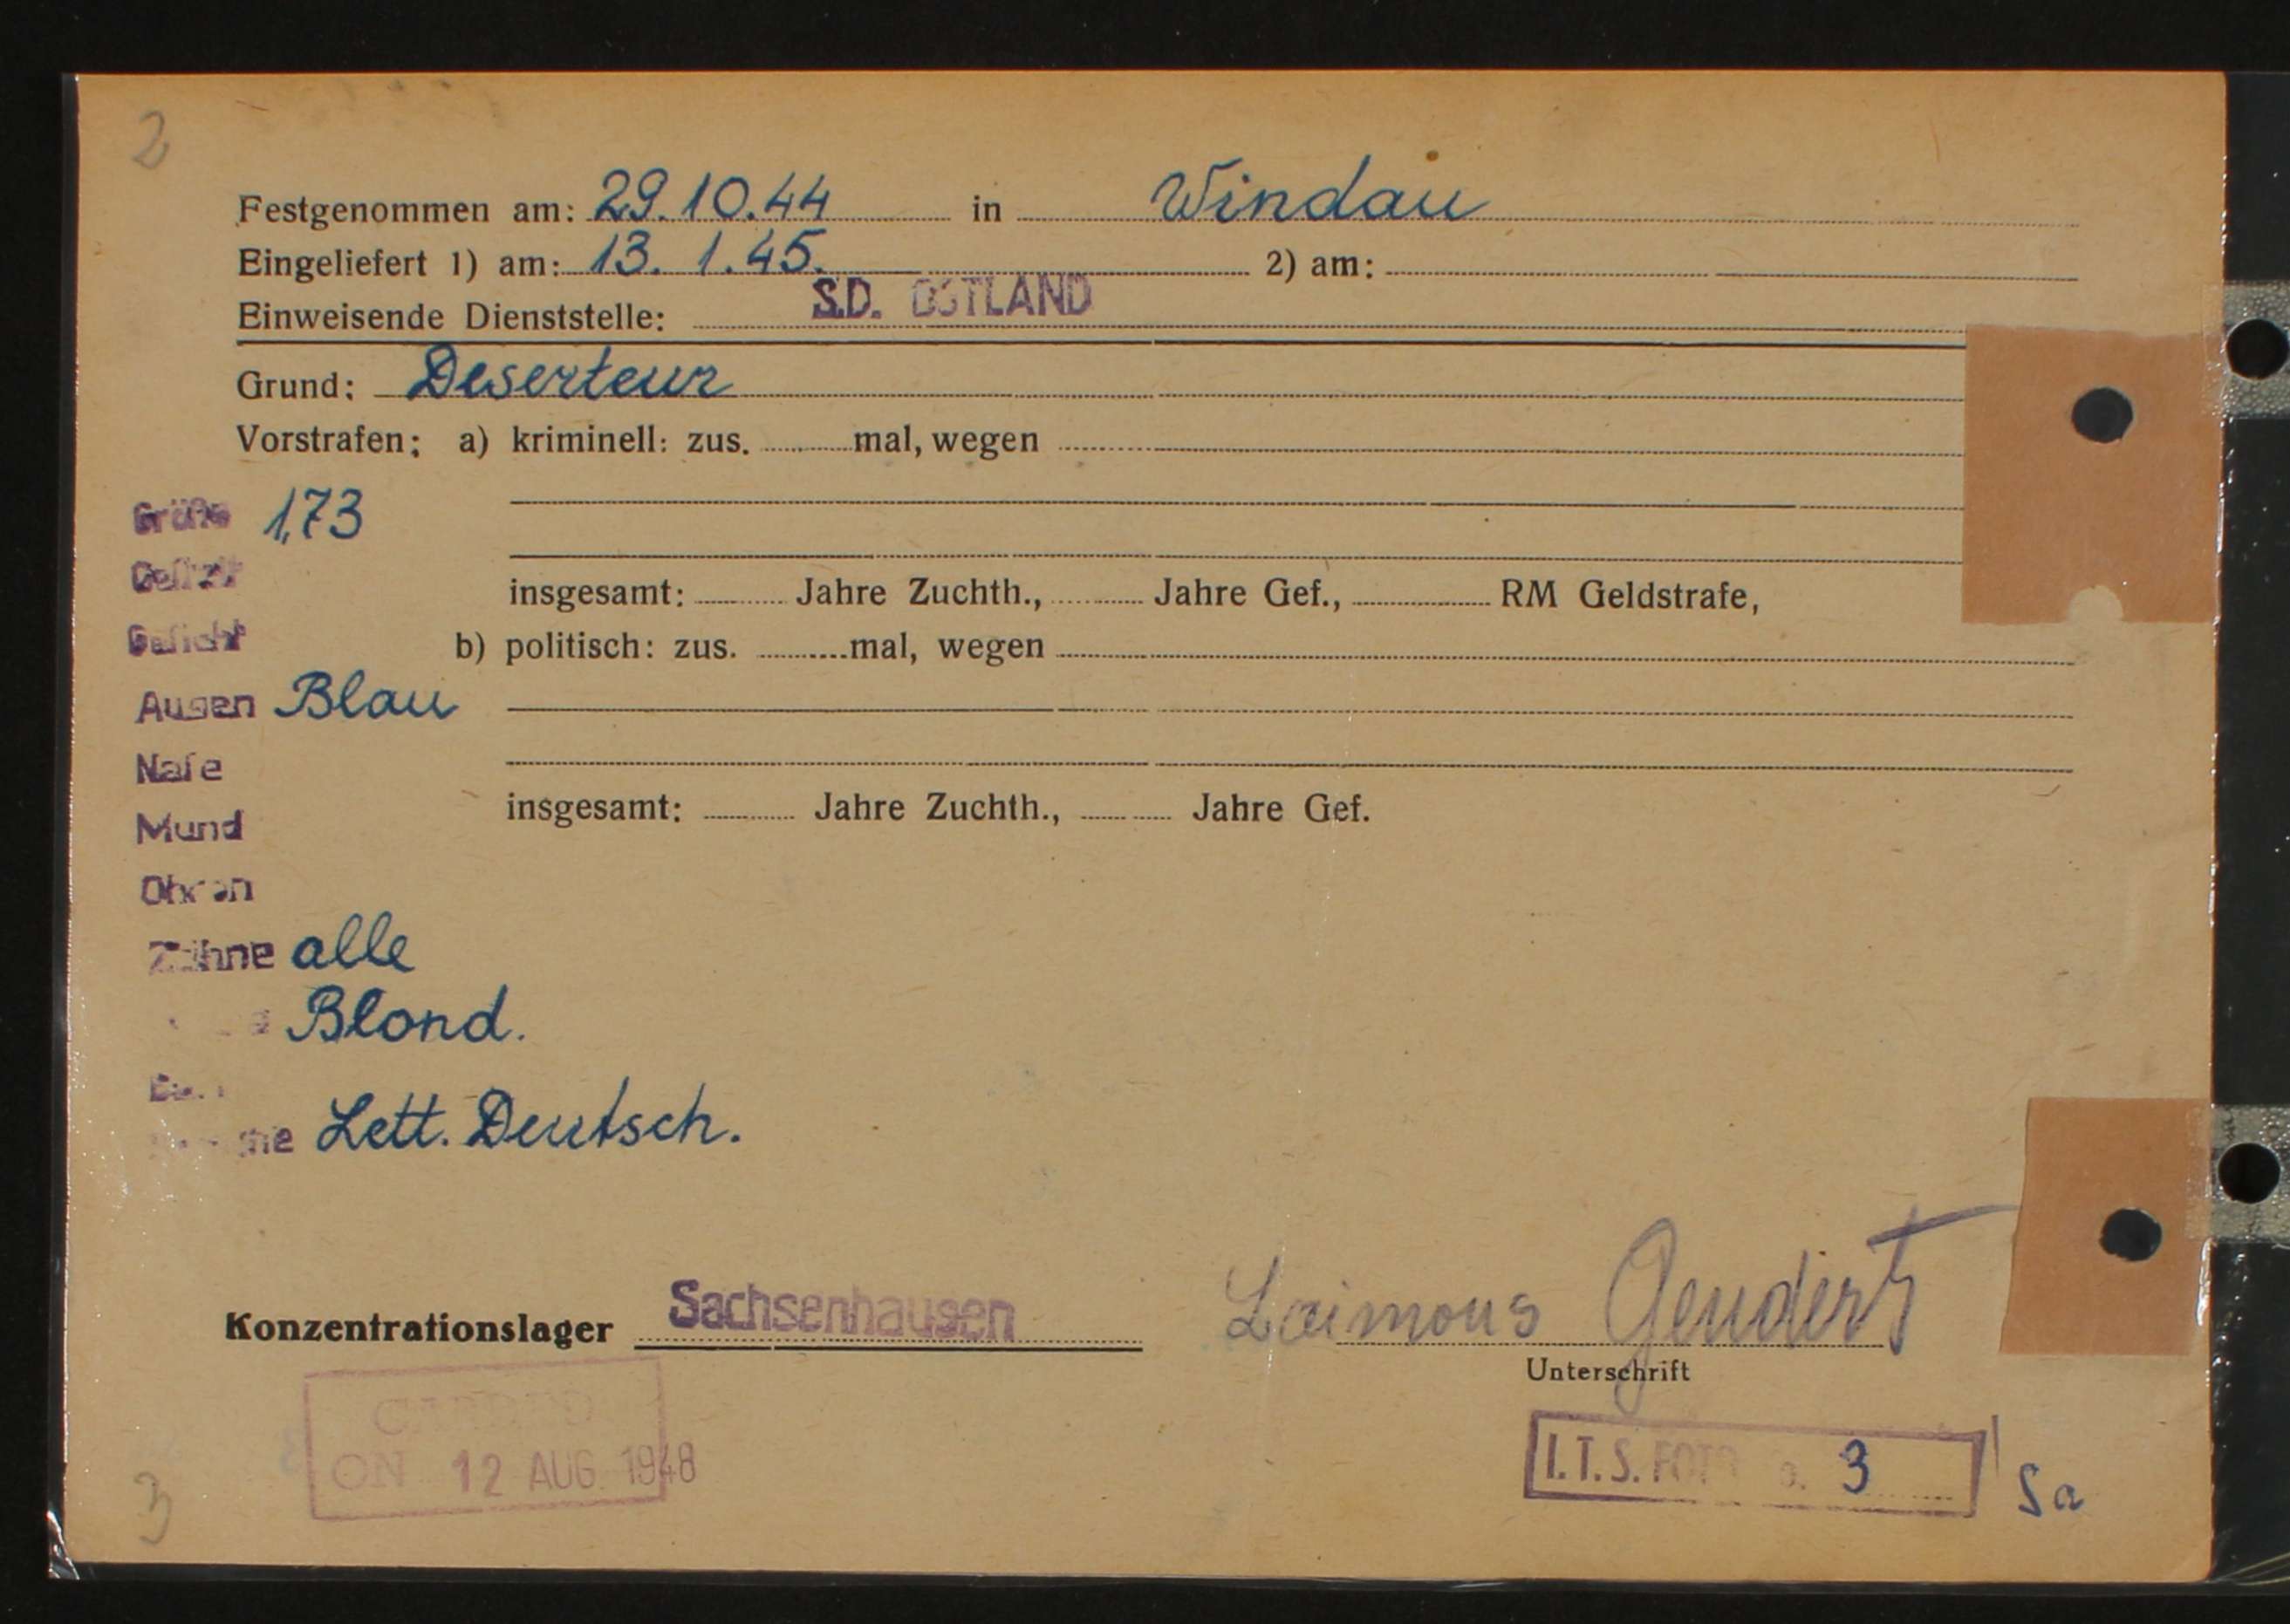 2
Festgenommen am: 29.10.44 in Windau
Eingeliefert 1) am: 13. 1.45. 2) am:
Einweisende Dienststelle: S.D. OSTLAND
Grund: Deserteur
Vorstrafen; a) kriminell: zus. mal, wegen
Größe 1,73
insgesamt: Jahre Zuchth., Jahre Gef., RM Geldstrafe,
Gesicht
b) politisch: zus. mal, wegen
Augen Blau
Nase
Mund
insgesamt: Jahre Zuchth., Jahre Gef.
Ohren
Zähne alle
Blond.
Lett. Deutsch.
Konzentrationslager Sachsenhausen
Laimons
Unterschrift
ON 12 AUG. 1948
I.T.S. FOTO 3
Sa
3